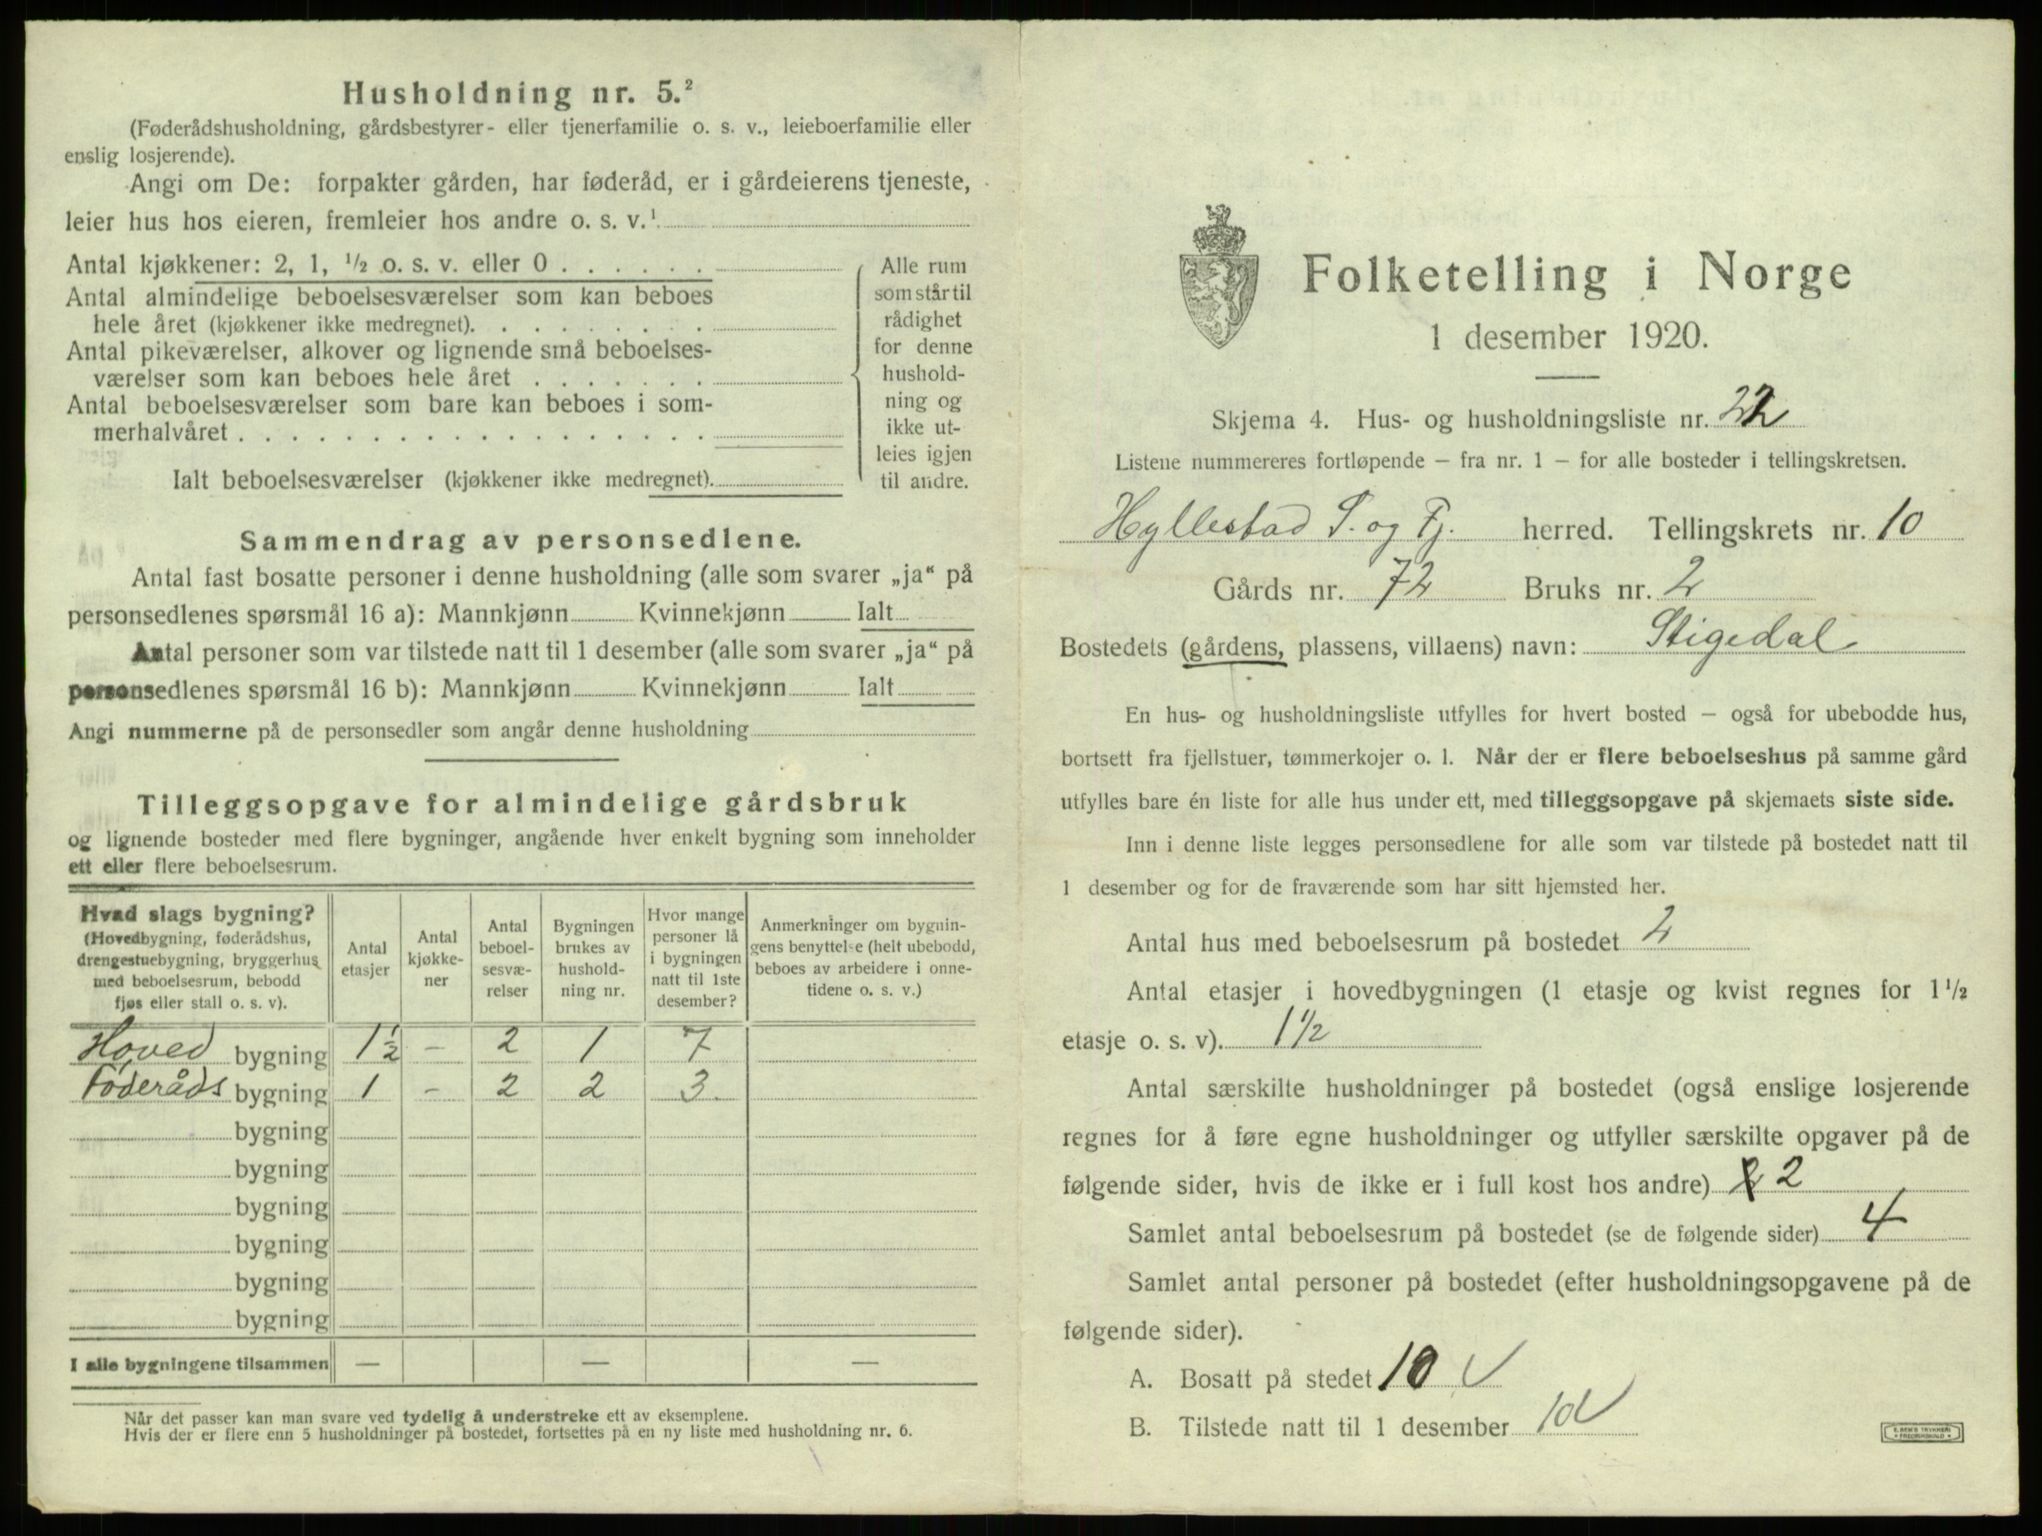 Husholdning nr. 5.²
(Føderådshusholdning, gårdsbestyrer- eller tjenerfamilie o. s. v., leieboerfamilie eller
enslig losjerende).
Angi om De: forpakter gården, har føderåd, er i gårdeierens tjeneste,
leier hus hos eieren, fremleier hos andre o. s. v.¹
Antal kjøkkener: 2, 1, ½ o. s. v. eller 0 . . . . . .
Antal almindelige beboelsesværelser som kan beboes
hele året (kjøkkener ikke medregnet). . . . . . . . .
Antal pikeværelser, alkover og lignende små beboelses-
værelser som kan beboes hele året . . . . . . .
Antal beboelsesværelser som bare kan beboes i som-
merhalvåret . . . . . . . . . . . . . . . . . .
Ialt beboelsesværelser (kjøkkener ikke medregnet).
Alle rum
som står til
rådighet
for denne
hushold-
ning og
ikke ut-
leies igjen
til andre.
Sammendrag av personsedlene.
Antal fast bosatte personer i denne husholdning (alle som svarer „ja“ på
personsedlenes spørsmål 16 a): Mannkjønn Kvinnekjønn Ialt
Antal personer som var tilstede natt til 1 desember (alle som svarer „ja“ på
personsedlenes spørsmål 16 b): Mannkjønn Kvinnekjønn Ialt
Angi nummerne på de personsedler som angår denne husholdning
Tilleggsopgave for almindelige gårdsbruk
og lignende bosteder med flere bygninger, angående hver enkelt bygning som inneholder
ett eller flere beboelsesrum.
Hvad slags bygning?
(Hovedbygning, føderådshus,
drengestuebygning, bryggerhus
med beboelsesrum, bebodd
fjøs eller stall o. s. v).
Antal
etasjer
Antal
kjøkke-
ner
Antal
beboel-
sesvæ-
relser
Bygningen
brukes av
hushold-
ning nr.
Hvor mange
personer lå
i bygningen
natt til 1ste
desember?
Anmerkninger om bygnin-
gens benyttelse (helt ubebodd,
beboes av arbeidere i onne-
tidene o. s. v.)
Hoved bygning 1½ - 2 1 7
Føderåds bygning 1 - 2 2 3
bygning
bygning
bygning
bygning
bygning
bygning
I alle bygningene tilsammen — — —
Når det passer kan man svare ved tydelig å understreke ett av eksemplene.
Hvis der er flere enn 5 husholdninger på bostedet, fortsettes på en ny liste med husholdning nr. 6.
Folketelling i Norge
1 desember 1920.
Skjema 4. Hus- og husholdningsliste nr. 22
Listene nummereres fortløpende – fra nr. 1 – for alle bosteder i tellingskretsen.
Hyllestad S. og Fj. herred. Tellingskrets nr. 10
Gårds nr. 72 Bruks nr. 2
Bostedets (gårdens, plassens, villaens) navn: Stigedal
En hus- og husholdningsliste utfylles for hvert bosted – også for ubebodde hus,
bortsett fra fjellstuer, tømmerkojer o. l. Når der er flere beboelseshus på samme gård
utfylles bare én liste for alle hus under ett, med tilleggsopgave på skjemaets siste side.
Inn i denne liste legges personsedlene for alle som var tilstede på bostedet natt til
1 desember og for de fraværende som har sitt hjemsted her.
Antal hus med beboelsesrum på bostedet 2
Antal etasjer i hovedbygningen (1 etasje og kvist regnes for 1 ½
etasje o. s. v). 1½
Antal særskilte husholdninger på bostedet (også enslige losjerende
regnes for å føre egne husholdninger og utfyller særskilte opgaver på de
følgende sider, hvis de ikke er i full kost hos andre) 2
Samlet antal beboelsesrum på bostedet (se de følgende sider) 4
Samlet antal personer på bostedet (efter husholdningsopgavene på de
følgende sider).
A. Bosatt på stedet 10 ✓
B. Tilstede natt til 1 desember 10 ✓